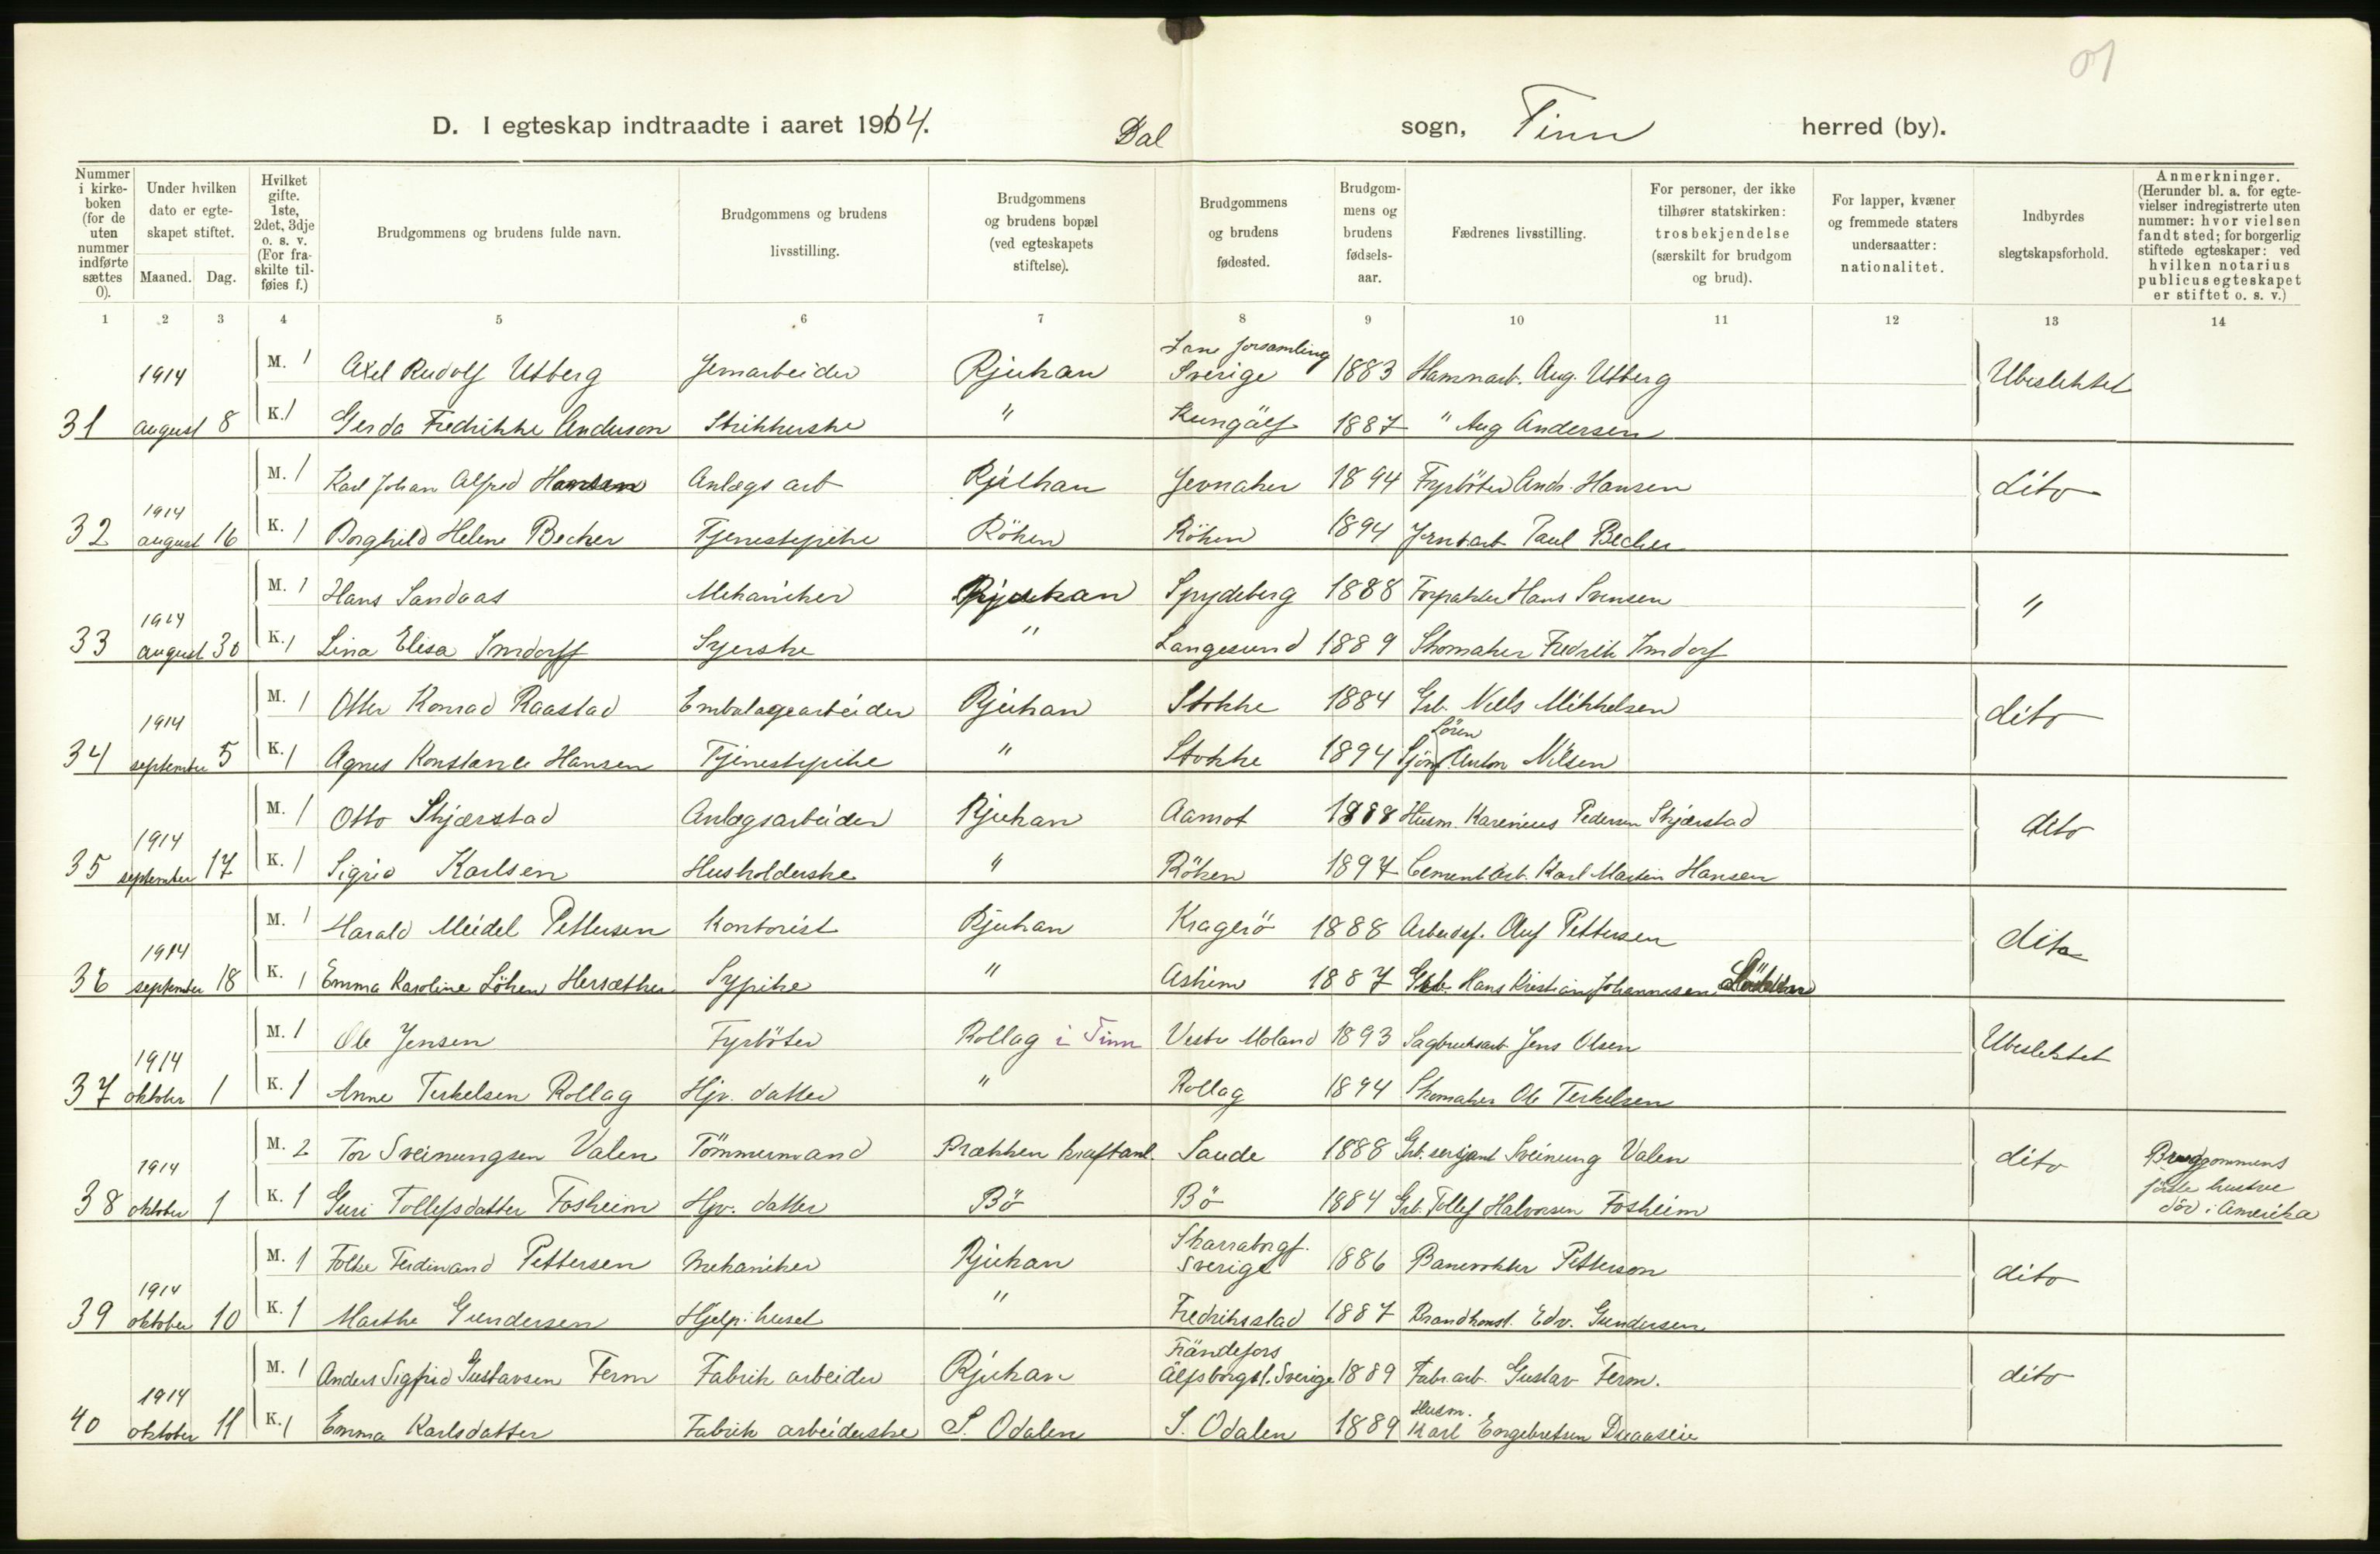 01
D. I egteskap indtraadte i aaret 1914. Dal sogn, Tinn herred (by).
Nummer i kirke- boken (for de uten nummer indførte sættes 0).
Under hvilken dato er egte- skapet stiftet.
Maaned. Dag.
Hvilket gifte. 1ste, 2det, 3dje o. s. v. (For fra- skilte til- føies f.)
Brudgommens og brudens fulde navn.
Brudgommens og brudens livsstilling.
Brudgommens og brudens bopæl (ved egteskapets stiftelse).
Brudgommens og brudens fødested.
Brudgom- mens og brudens fødsels- aar.
Fædrenes livsstilling.
For personer, der ikke tilhører statskirken: trosbekjendelse (særskilt for brudgom og brud).
For lapper, kvæner og fremmede staters undersaatter: nationalitet.
Indbyrdes slegtskapsforhold.
Anmerkninger. (Herunder bl. a. for egte- vielser indregistrerte uten nummer: hvor vielsen fandt sted; for borgerlig stiftede egteskaper: ved hvilken notarius publicus egteskapet er stiftet o. s. v.)
1 2 3 4 5 6 7 8 9 10 11 12 13 14
1914 M. 1 Axel Rudolf Utberg Jernarbeider Rjukan forsamling Sverige 1883 Aug. Utberg Ubeslektet
31 august 8 K. 1 Gerda Fredrikke Anderson Strikkerske " Kungälf 1887 " Aug Andersen
1914 M. 1 Karl Johan Alfred Hansen Anlægs arb Rjukan Jevnaker 1894 Fyrböter Andr. Hansen dito
32 august 16 K. 1 Borghild Helene Becker Tjenestepike Röken Röken 1894 Paul Becker
1914 M. 1 Hans Sandaas Mekaniker Rjukan Spydeberg 1888 Forpakter Hans Svensen "
33 august 30 K. 1 Lina Elisa Imdorff Syerske " Langesund 1889 Skomaker Fredrik Imdorf
1914 M. 1 Otter Konrad Raastad Embalagearbeider Rjukan Stokke 1884 Grb. Niels Mikkelsen dito
34 september 5 K. 1 Agnes Konstance Hansen Tjenestepike " Stokke 1894 Sjöm. Sören Anton Nilsen
1914 M. 1 Otto Skjærstad Anlægsarbeider Rjukan Aamot 1888 Husm. Karenius Pedersen Skjærstad dito
35 september 17 K. 1 Sigrid Karlsen Husholderske " Röken 1897 Cementarb. Karl Martin Hansen
1914 M. 1 Harald Meidel Pettersen Kontorist Rjukan Kragerö 1888 Arbeidsf. Oluf Pettersen dito
36 september 18 K. 1 Emma Karoline Löken Hersæther Sypike " Askim 1887 Grb. Hans Kristian Johannesen
1914 M. 1 Ole Jensen Fyrböter Rollag i Tinn Vestre Moland 1893 Sagbruksarb Jens Olsen Ubeslektet
37 oktober 1 K. 1 Anne Terkelsen Rollag Hjv. datter " Rollag 1894 Skomaker Ole Terkelsen
1914 M. 2 Tor Sveinungsen Valen Tömmermand Frækken kraftanl. Saude 1888 Grb. sersjant Sveinung Valen dito Brudgommens förste hustru död i Amerika
38 oktober 1 K. 1 Guri Tollefsdatter Fosheim Hjv. datter Bö Bö 1884 Grb. Tollef Halvorsen Fosheim
1914 M. 1 Folke Ferdinand Pettersen Mekaniker Rjukan Skaraborgs. Sverige 1886 Banevokter Petterson dito
39 oktober 10 K. 1 Marthe Gundersen Hjelp. huset " Fredriksstad 1887 Brandkonst. Edv. Gundersen
1914 M. 1 Anders Sigfrid Gustavsen Ferm Fabrik arbeider Rjukan Frändefors Älfsborgsl. Sverige 1889 Fabr. arb. Gustav Ferm. dito
40 oktober 11 K. 1 Emma Karlsdatter Fabrik arbeiderske S. Odalen S. Odalen 1889 Husm. Karl Engebretsen